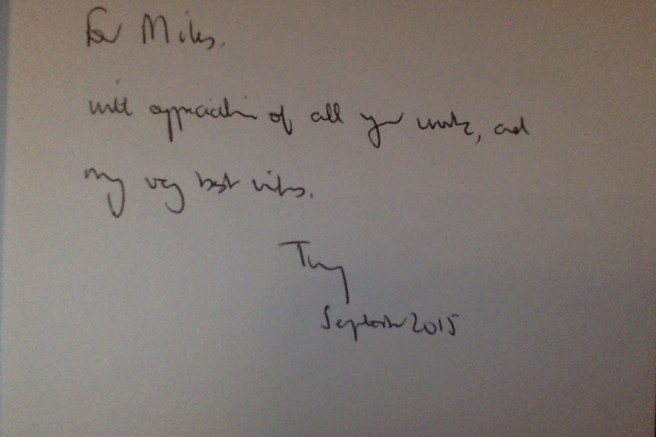 For Miles.
with appreciation of all your work, and
my very best wishes.
Tony
September 2015